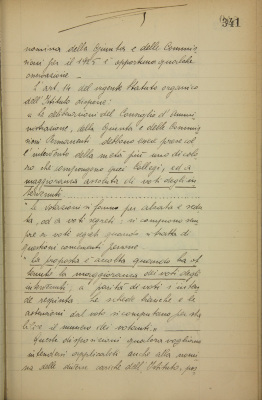 341
nomina della Giunta e delle Commis
sioni per il 1925 è opportuna qualche
L'art. 14 del vigente Statuto organico
dell'Istituto dispone:
"Le deliberazioni del Consiglio d'Ammi
nistrazione, della Giunta e delle Commis
sioni Permanenti debbono essere prese col
l'intervento della metà più uno di colo
ro che compongono quei Collegi, ed a
maggioranza assoluta di voti degli in
tervenuti.
"Le votazioni si fanno per alzata e sedu
ta, od a voti segreti; si compiono sem
pre a voti segreti quando si tratta di
questioni concernenti persone.
"La proposta è accolta quando ha ot
tenuto la maggioranza dei voti degli
intervenuti; a parità di voti s'inten
de respinta. Le schede bianche e le
astensioni dal voto si computano per sta
bilire il numero dei votanti."
Queste disposizioni qualora vogliano
intendersi applicabili anche alla nomi
na delle cariche dell'Istituto, pos